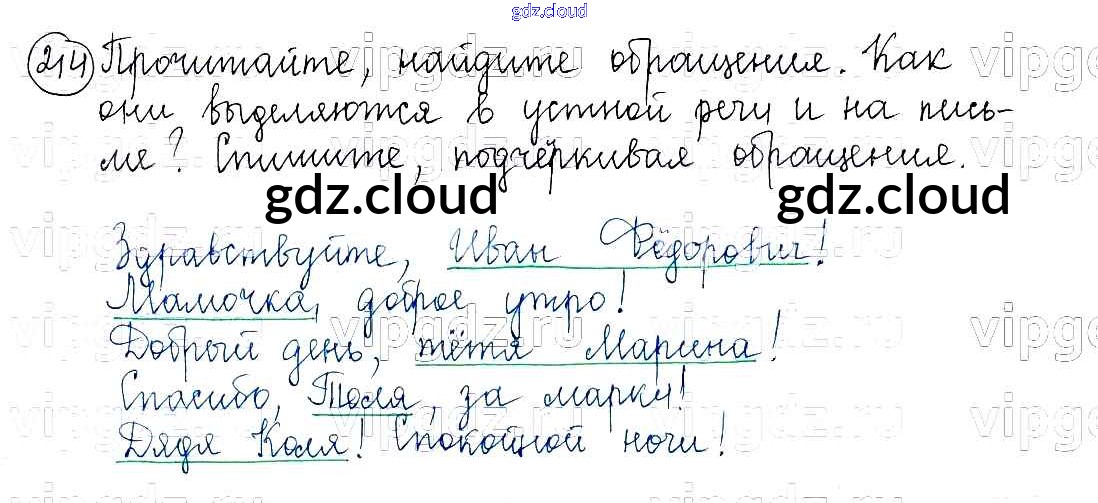 gdz.cloud
214 Прочитайте, найдите обращения. Как
они выделяются в устной речи и на пись-
ме? Спишите, подчёркивая обращения.
gdz.cloud gdz.cloud
Здравствуйте, Иван Фёдорович!
Мамочка, доброе утро!
Добрый день, тётя Марина!
Спасибо, Толя, за марки!
Дядя Коля! Спокойной ночи!